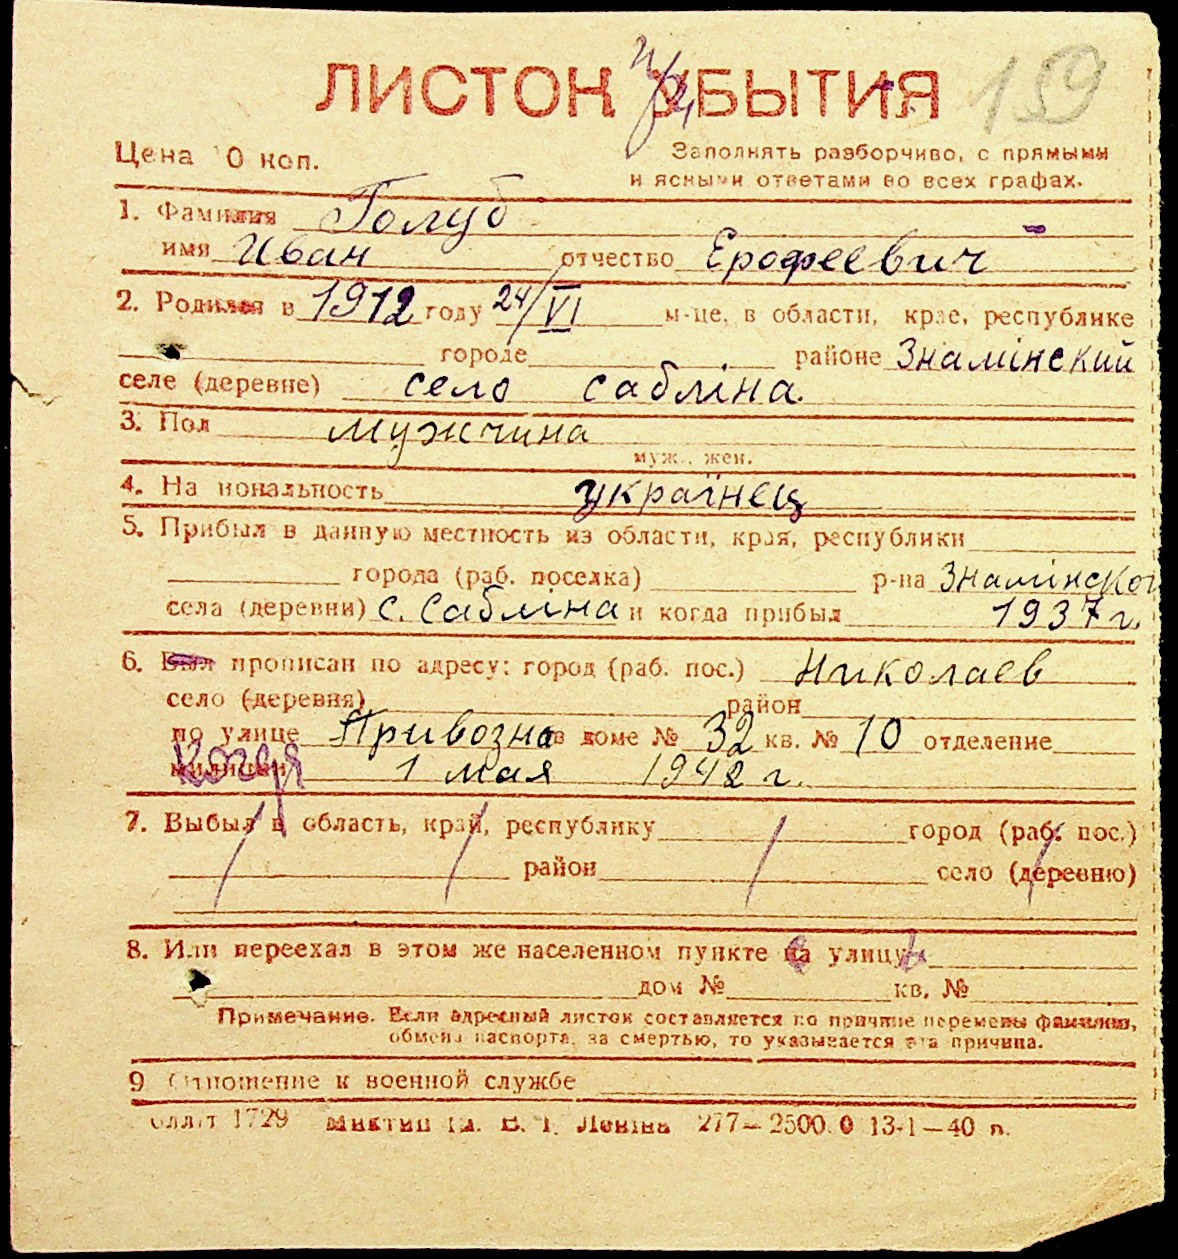 ЛИСТОК УБЫТИЯ 159
Цена 0 коп.
Заполнять разборчиво, с прямыми
и ясными ответами во всех графах.
1. Фамилия Голуб
имя Иван отчество Ерофеевич
2. Родился в 1912 году 24/VI м-це, в области, крае, республике
городе районе Знамінский
селе (деревне) село сабліна.
3. Пол мужчина
муж., жен.
4. На иональность українец
5. Прибыл в данную местность из области, края, республики
города (раб. поселка) р-на Знамінског
села (деревни) с. Сабліна и когда прибыл 1937 г.
6. Был прописан по адресу: город (раб. пос.) Николаев
село (деревня) район
по улице Привозна в доме № 32 кв. № 10 отделение
милиции когда 1 мая 1942 г.
7. Выбыл в область, край, республику город (раб. пос.)
район село (деревню)
8. Или переехал в этом же населенном пункте на улицу
дом № кв. №
Примечание. Если адресный листок составляется по причине перемены фамилии,
обмена паспорта, за смертью, то указывается эта причина.
9 Отношение к военной службе
1729 В. І. Леніна 277—2500.0 13-1—40 п.